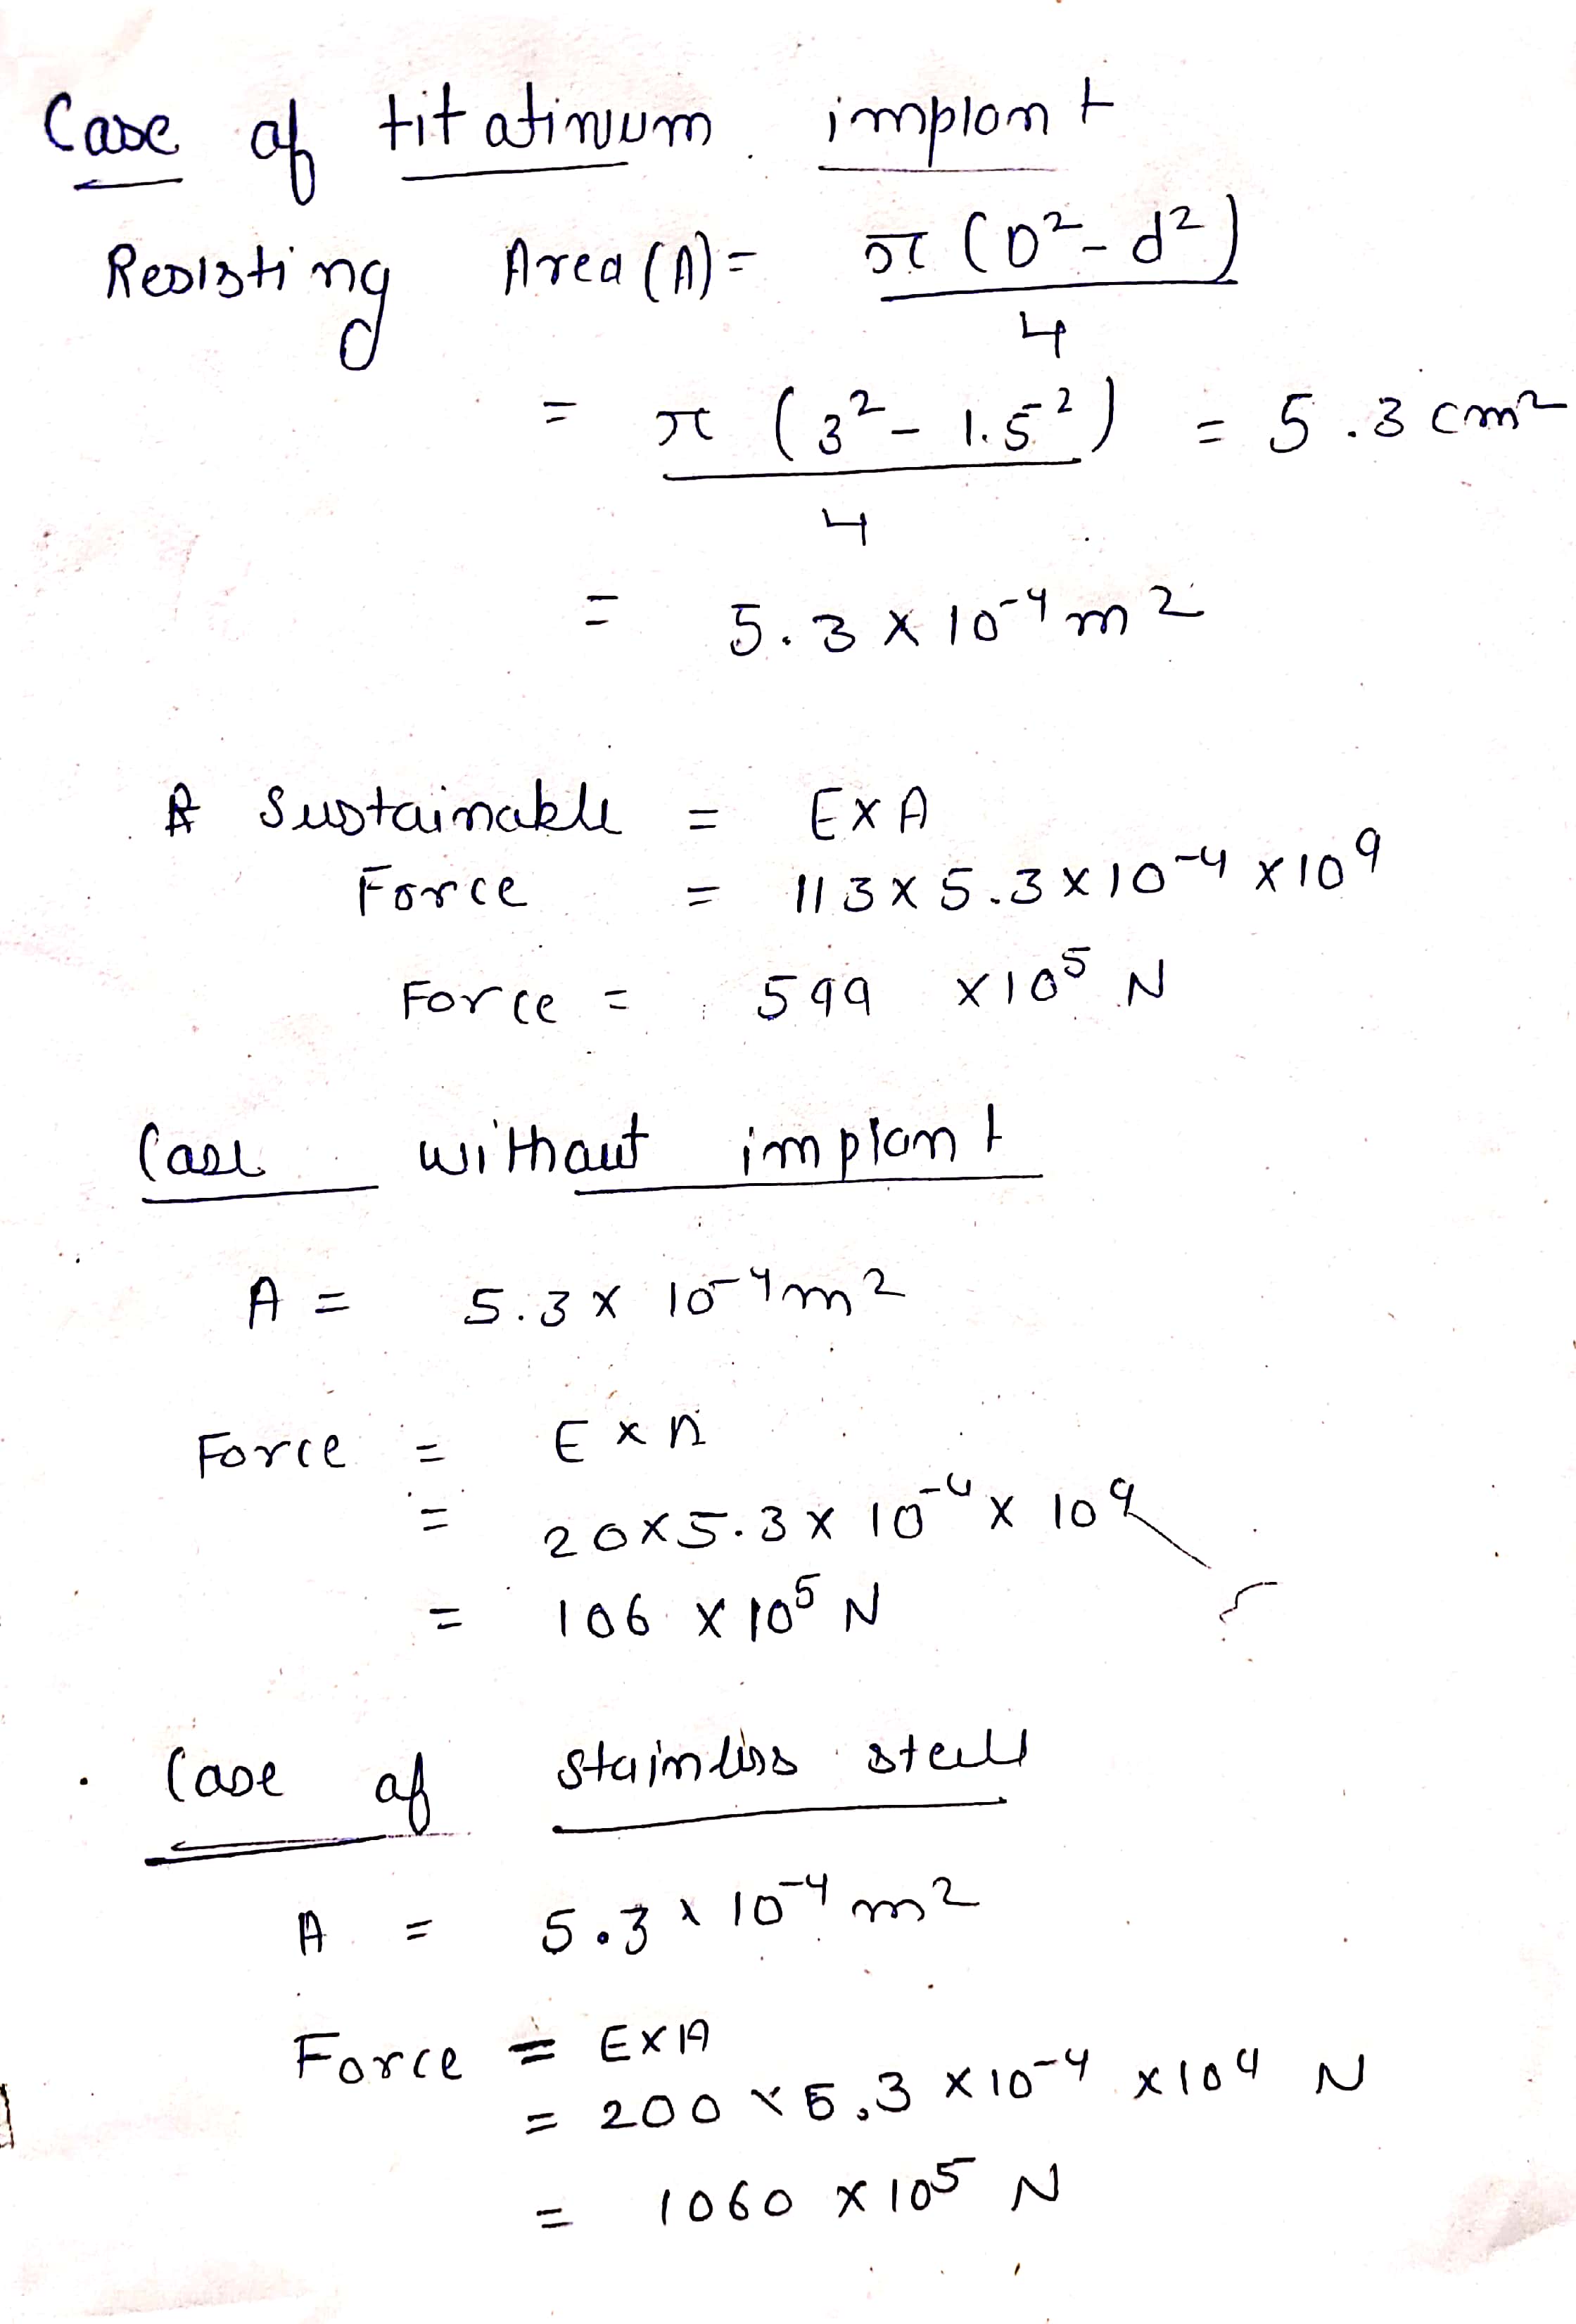 Case of titatinum implant
Resisting Area (A) = π (D² - d²)
4
= π (3² - 1.5²) = 5.3 cm²
4
= 5.3 x 10⁻⁴ m²
A Sustainable = E x A
Force = 113 x 5.3 x 10⁻⁴ x 10⁹
Force = 599 x 10⁵ N
Case without implant
A = 5.3 x 10⁻⁴ m²
Force = E x A
= 20 x 5.3 x 10⁻⁴ x 10⁹
= 106 x 10⁵ N
Case of stainless steell
A = 5.3 x 10⁻⁴ m²
Force = E x A
= 200 x 5.3 x 10⁻⁴ x 10⁹ N
= 1060 x 10⁵ N